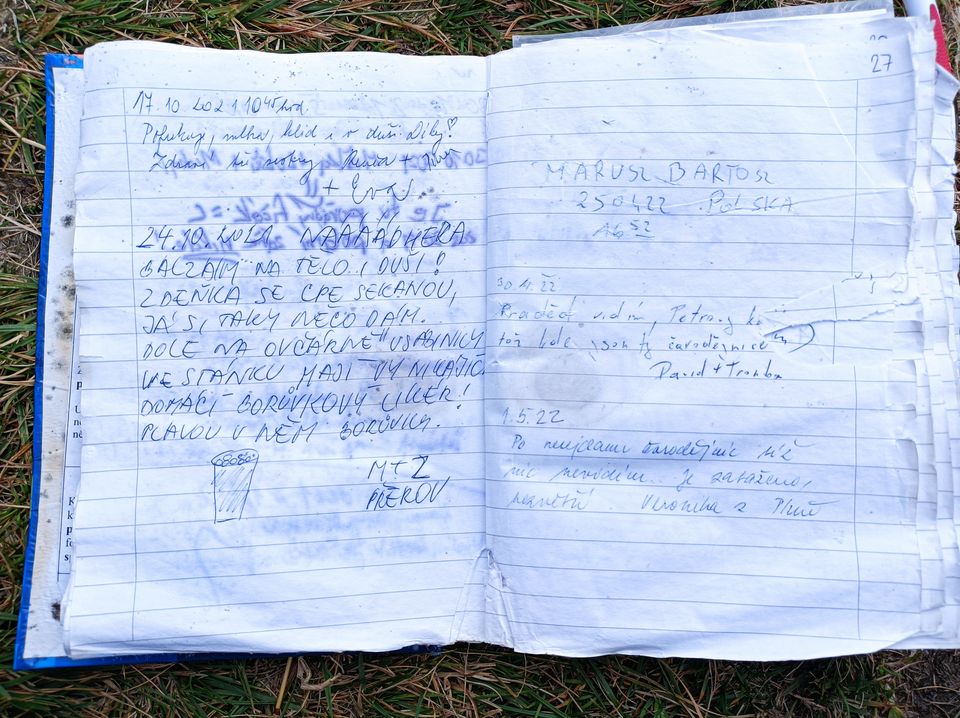 17.10.2021 10 45 hod.
mlha, klid i v duši. Díky♡
Zdraví tři sestry +
+ Eva
24.10.2021 NÁÁÁÁDHERA
BALZÁM NA TĚLO I DUŠI!
ZDEŇKA SE CPE SEKANOU,
JÁ SI TAKY NĚCO DÁM.
DOLE NA OVČÁRNĚ U SABINKY
VE STÁNKU MAJÍ VYNIKAJÍCÍ
DOMÁCÍ BORŮVKOVÝ LIKÉR!
PLAVOU V NĚM BORŮVKY.
M+Z
PŘEROV
27
MARUSZ BARTOSZ
25.04.22 POLSKA
16 52
30.4.22
Praděd vidím, Petrovy
tož kde jsou ty čarodějnice
David +
1.5.22
Po čarodějnic též
nic nevidím.. Je zataženo,
Veronika z